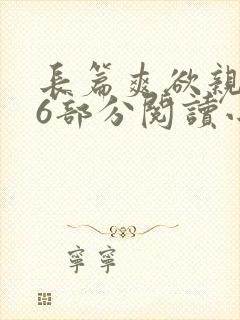 長篇爽欲親
6部分閱讀
寧寧